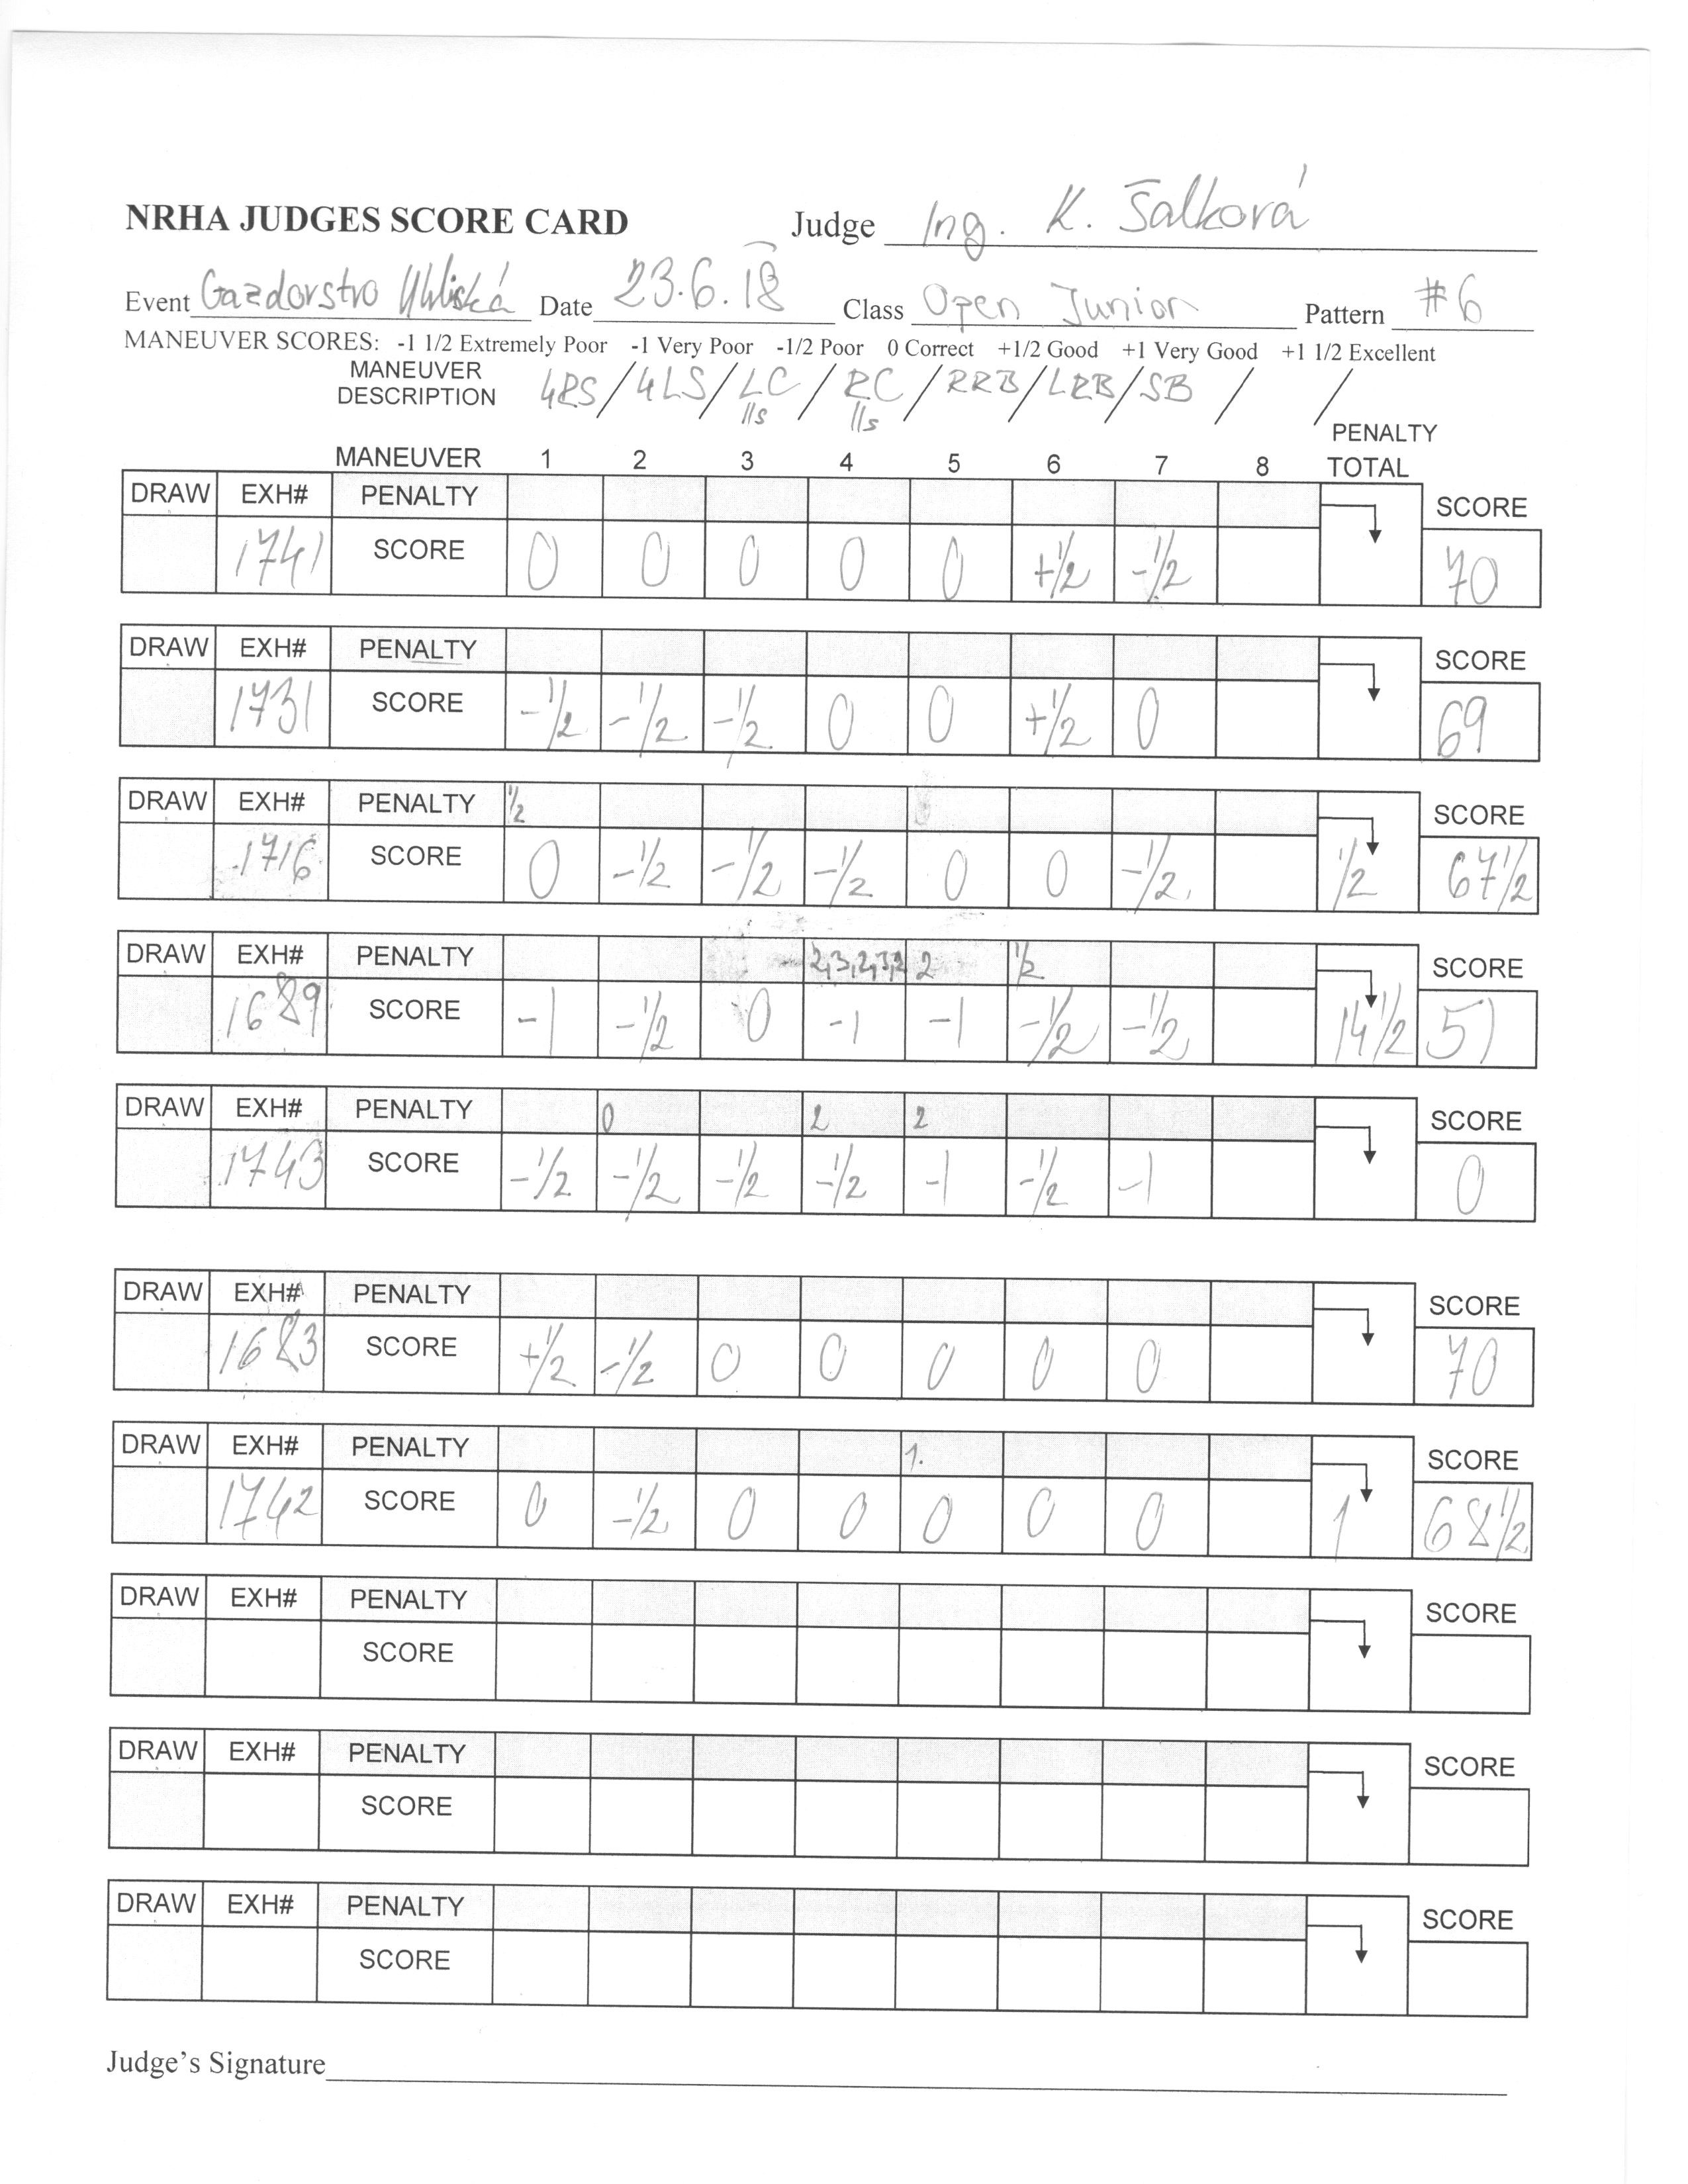 NRHA JUDGES SCORE CARD Judge Ing. K. Šalková
Event Gazdovstvo Uhliská Date 23.6.18 Class Open Junior Pattern #6
MANEUVER SCORES: -1 1/2 Extremely Poor -1 Very Poor -1/2 Poor 0 Correct +1/2 Good +1 Very Good +1 1/2 Excellent
MANEUVER DESCRIPTION 4RS / 4LS / LC lls / RC lls / RRB / LRB / SB / /
MANEUVER 1 2 3 4 5 6 7 8 PENALTY TOTAL
DRAW EXH# PENALTY SCORE
1741 SCORE 0 0 0 0 0 +1/2 -1/2 70
DRAW EXH# PENALTY SCORE
1731 SCORE -1/2 -1/2 -1/2 0 0 +1/2 0 69
DRAW EXH# PENALTY 1/2 SCORE
1716 SCORE 0 -1/2 -1/2 -1/2 0 0 -1/2 1/2 67 1/2
DRAW EXH# PENALTY 2,3,2,3,2 2 1/2 SCORE
1689 SCORE -1 -1/2 0 -1 -1 -1/2 -1/2 14 1/2 51
DRAW EXH# PENALTY 0 2 2 SCORE
1743 SCORE -1/2 -1/2 -1/2 -1/2 -1 -1/2 -1 0
DRAW EXH# PENALTY SCORE
1683 SCORE +1/2 -1/2 0 0 0 0 0 70
DRAW EXH# PENALTY 1. SCORE
1742 SCORE 0 -1/2 0 0 0 0 0 1 68 1/2
DRAW EXH# PENALTY SCORE
SCORE
DRAW EXH# PENALTY SCORE
SCORE
DRAW EXH# PENALTY SCORE
SCORE
Judge's Signature